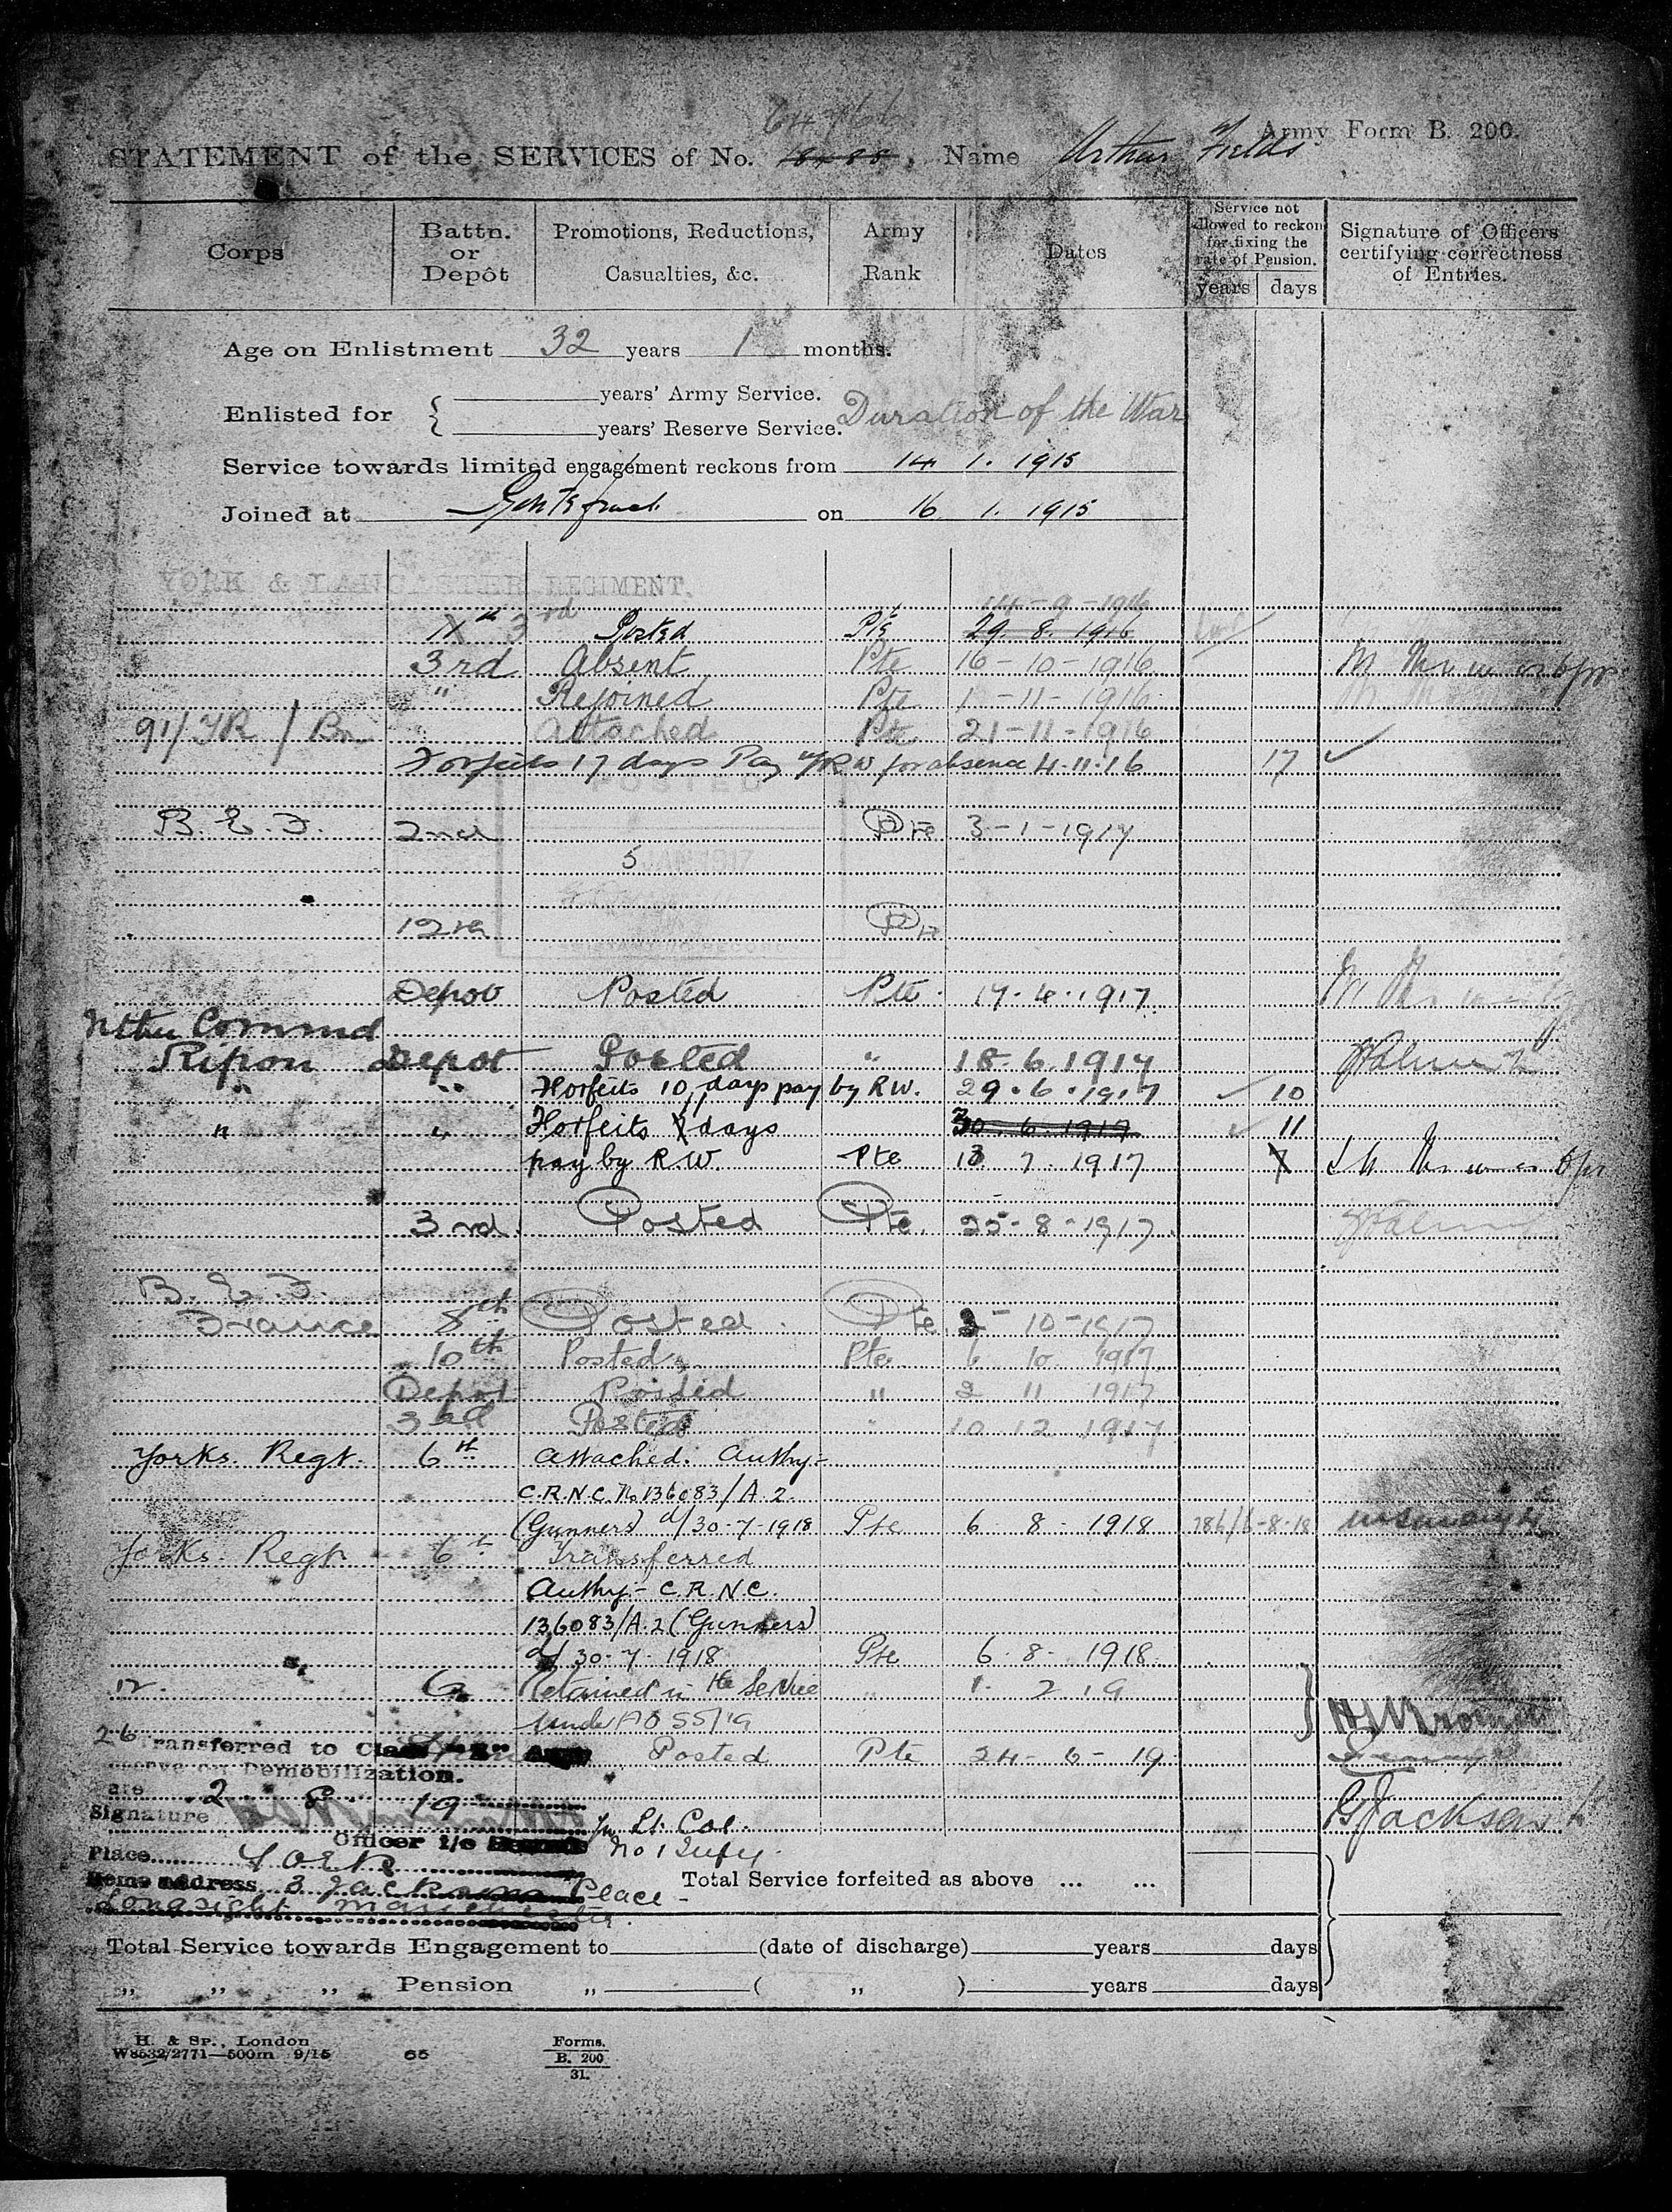 Army Form B. 200.
STATEMENT of the SERVICES of No. Name Arthur Fields
Corps
Battn. or Depôt
Promotions, Reductions, Casualties, &c.
Army Rank
Dates
Service not allowed to reckon for fixing the rate of Pension.
years days
Signature of Officers certifying correctness of Entries.
Age on Enlistment 32 years 1 months.
Enlisted for
years' Army Service.
years' Reserve Service.
Duration of the War
Service towards limited engagement reckons from 14 1. 1915
Joined at on 16 1. 1915
YORK & LANCASTER REGIMENT.
14-9-1916
3rd Posted Pte 29.8.1916
3rd Absent Pte 16-10-1916
" Rejoined Pte 1-11-1916
91/TR/Bn " Attached Pte 21-11-1916
Forfeits 17 days Pay RW for absence 4.11.16 17
POSTED
B.E.F. 2nd Pte 3-1-1917
5 JAN 1917
12th Pte
Depot Posted Pte 17.4.1917
Nthn Commd
Ripon Depot Posted " 18.6.1917
" " Forfeits 10 days pay by R.W. 29.6.1917 10
" " Forfeits 7 days 30.6.1917 11
pay by R.W. Pte 13 7 1917 7
3rd Posted Pte. 25-8-1917
B.E.F.
France 8th Posted Pte 2-10-1917
10th Posted Pte 6 10 1917
Depot Posted " 2 11 1917
3rd Posted " 10 12 1917
Yorks. Regt. 6th Attached. Authy:-
C.R.N.C. No 136083/A.2.
(Gunners) d/30-7-1918 Pte 6 8 1918
Yorks. Regt 6th Transferred
Authy:- C.R.N.C.
136083/A.2 (Gunners)
d/30-7-1918 Pte 6-8-1918
Retained in the Service " 1. 2 19
under AO 55/19
Posted Pte 24-6-19
Transferred to Class
on Demobilization.
2 8 19
Signature
for Lt. Col.
G Jackson
Officer i/c
No 1 Infy.
Place York
Home Address 3 Place
Longsight Manchester.
Total Service forfeited as above ... ...
Total Service towards Engagement to (date of discharge) years days
„ „ „ Pension „ ( „ ) years days
H. & SP., London
W8532/2771—500m 9/15 65
Forms.
B. 200
31.